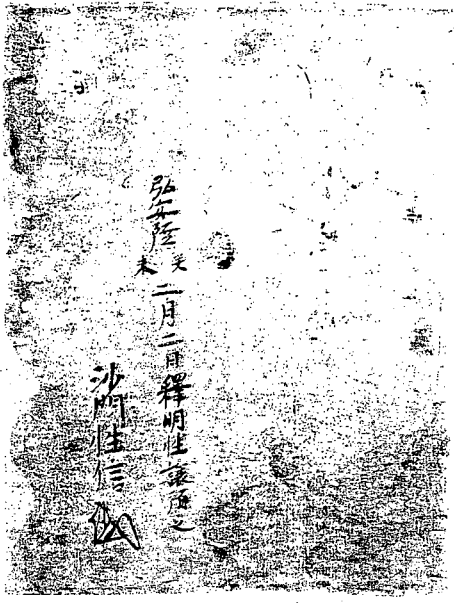 弘安陸癸未二月二日釋明性讓預之
沙門性信